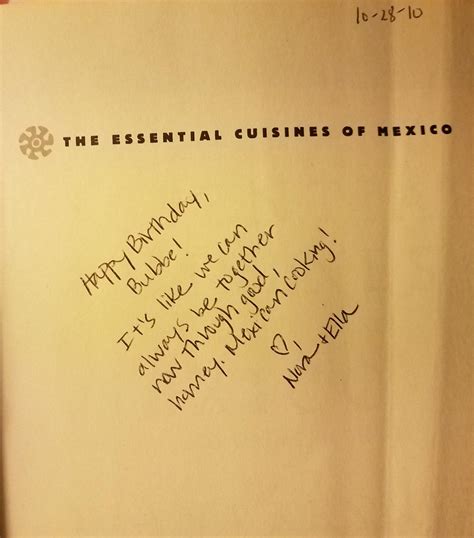 10-28-10
THE ESSENTIAL CUISINES OF MEXICO
Happy Birthday,
Bubbe!
It's like we can
always be together
now through good,
homey, Mexican cooking!
♡,
Nora + Ella